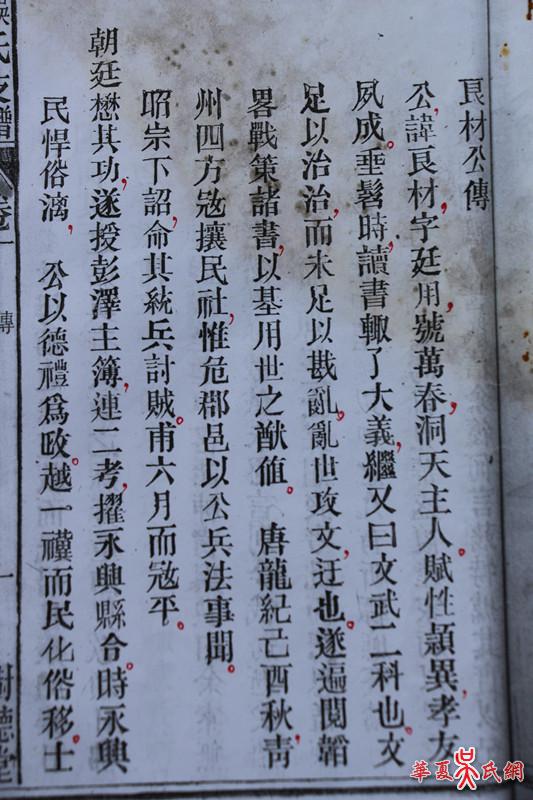 良材公傳
公諱良材字廷用號萬春洞天主人賦性穎異孝友
夙成垂髫時讀書輙了大義繼又曰文武二科也文
足以治治而未足以戡亂亂世攻文迂也遂遍閱韜
畧戰策諸書以基用世之猷値 唐龍紀己酉秋靑
州四方㓂攘民社惟危郡邑以公兵法事聞
昭宗下詔命其統兵討賊甫六月而㓂平
朝廷懋其功遂授彭澤主簿連二考擢永興縣令時永興
民悍俗漓 公以德禮爲政越一禩而民化俗移士
氏支譜
卷一
傳
一
樹德堂
華夏吳氏網